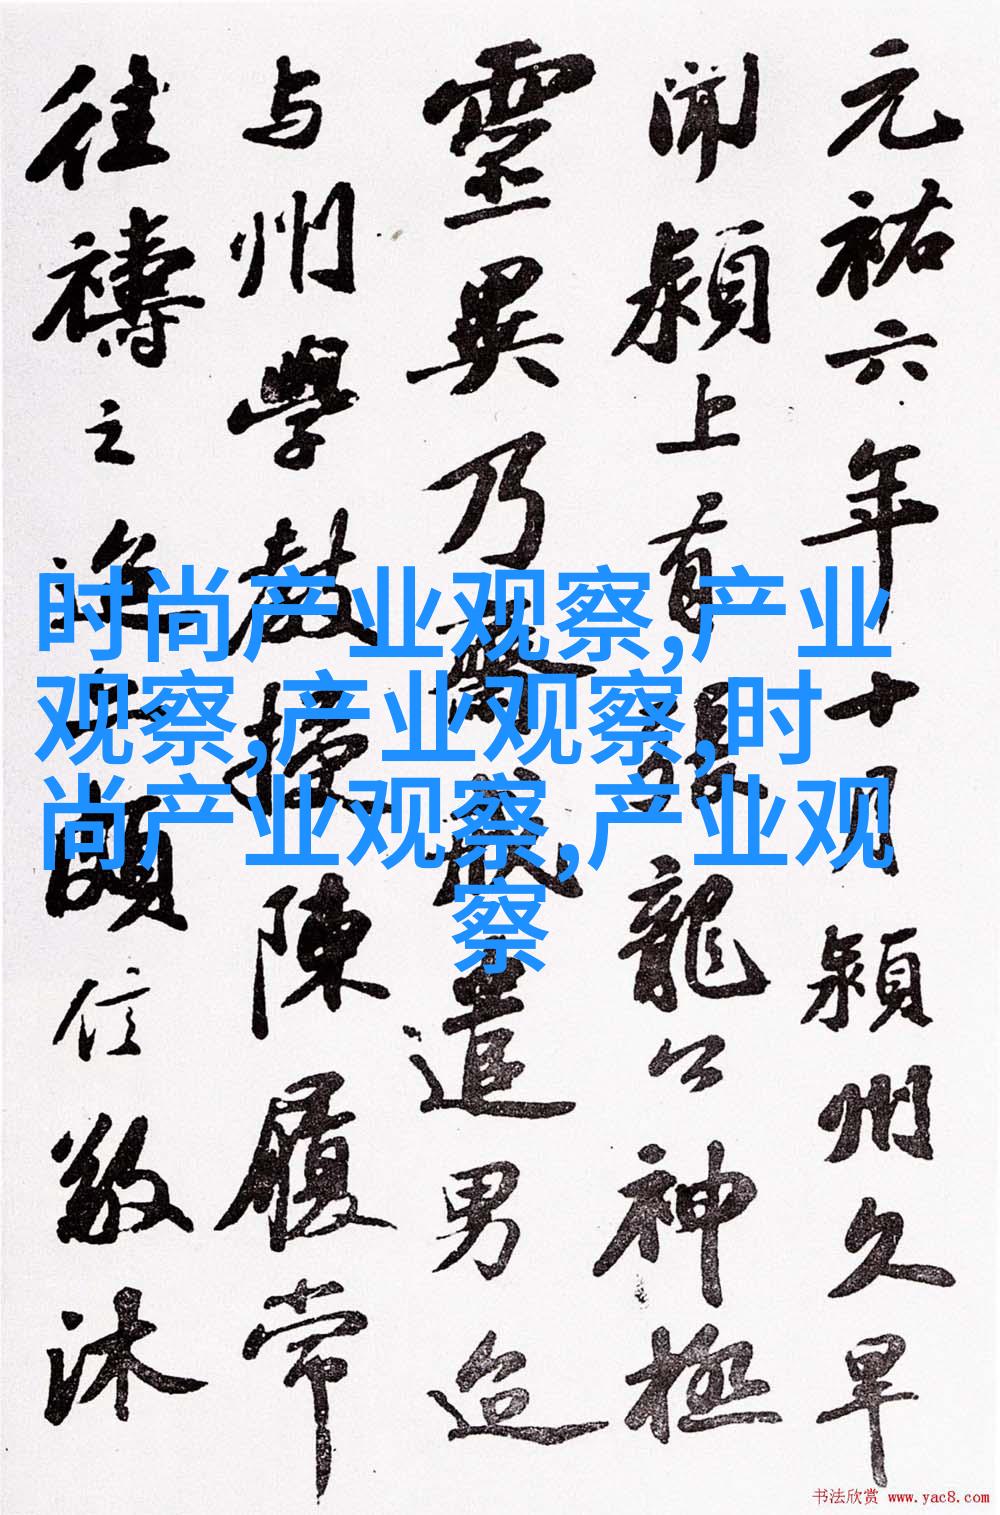 元祐六年十月颍州久旱
闻颍上有張龍公神極
靈異乃齋戒遣男迨
与州學教授陳履常
往禱之迨亦頗信敬沐
时尚产业观察,产业
观察,产业观察,时
尚产业观察,产业观
察
书法欣赏 www.yac8.com